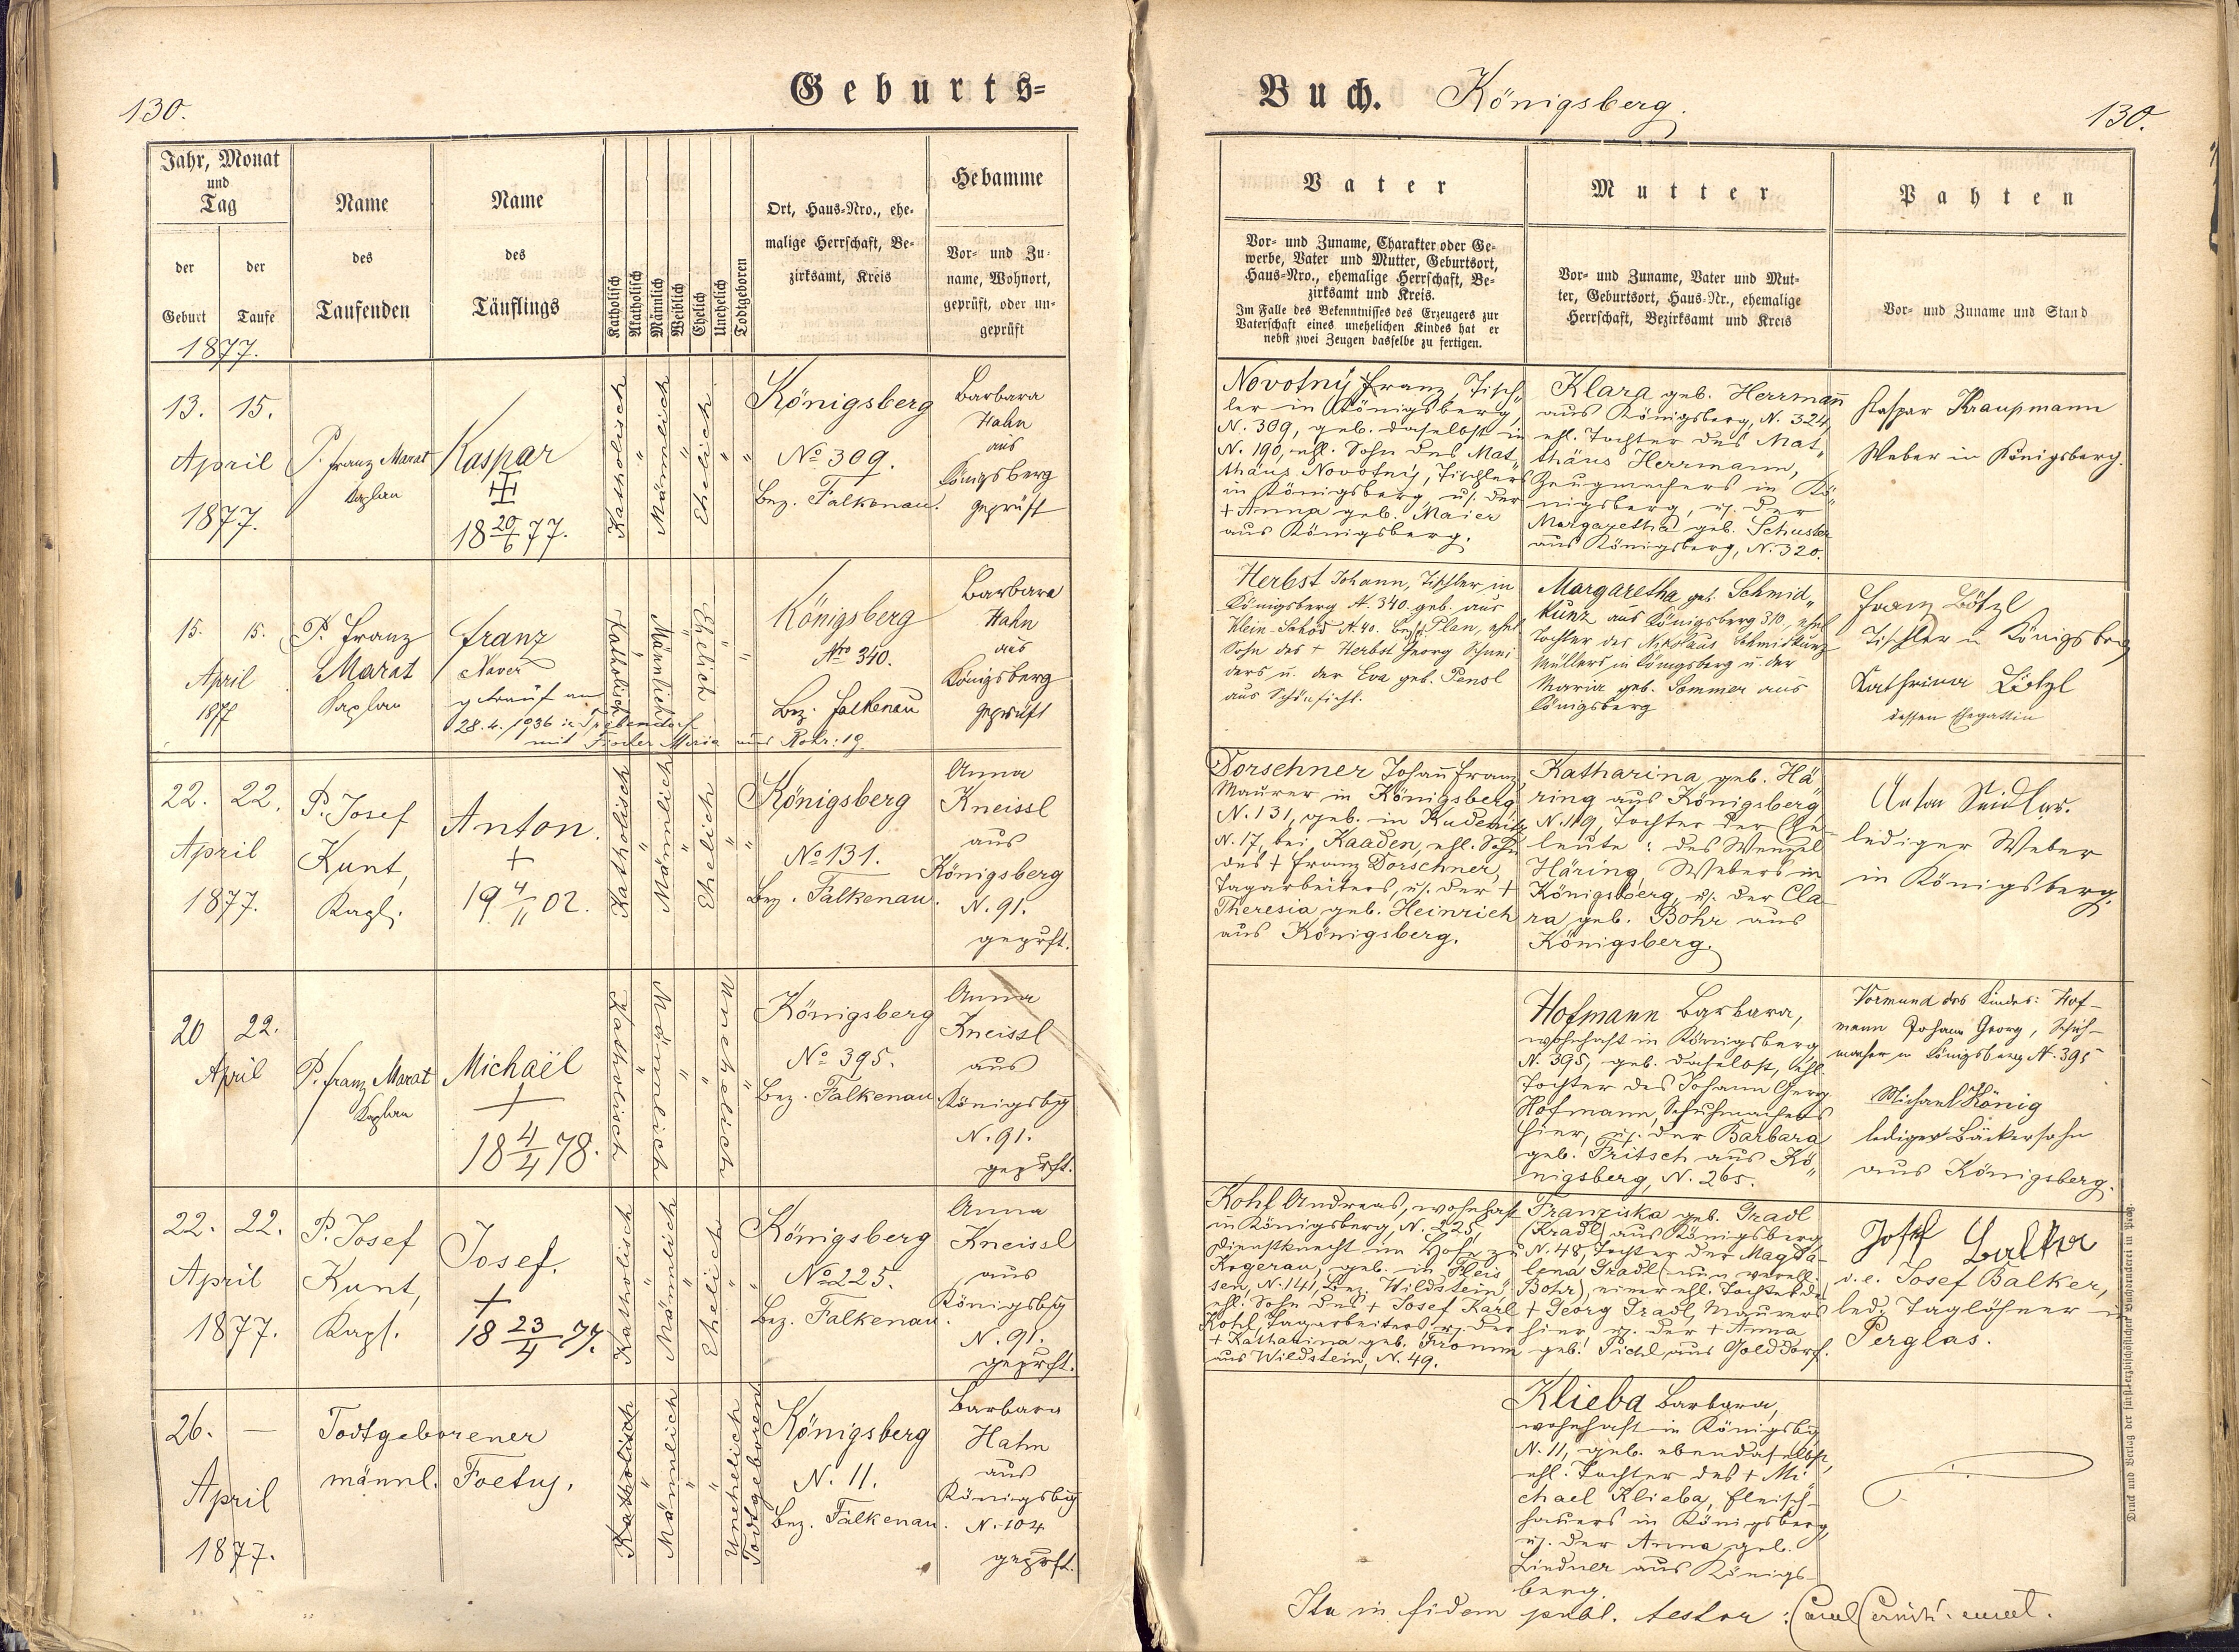 130.
Geburts=
Jahr, Monat
und
Tag
der
Geburt
der
Taufe
1877.
Name
des
Taufenden
Name
des
Täuflings
Katholisch
Akatholisch
Männlich
Weiblich
Ehelich
Unehelich
Todtgeboren
Ort, Haus-Nro., ehe-
malige Herrschaft, Be-
zirksamt, Kreis
Hebamme
Vor- und Zu-
name, Wohnort,
geprüft, oder un-
geprüft
13. 15.
April
1877.
P. Franz Marat
Kaplan
Kaspar
18 20/6 77.
Katholisch
"
Männlich
"
Ehelich
"
"
Königsberg
No 309.
Bez. Falkenau.
Barbara
Hahn
aus
Königsberg
geprüft
15. 15.
April
1877
P. Franz
Marat
Kaplan
Franz
Xaver
getraut am
28.4.1936 in
mit Maria aus Rohr: 19.
Katholisch
"
Männlich
"
Ehelich
"
"
Königsberg
Nro 340.
Bez. Falkenau
Barbara
Hahn
aus
Königsberg
geprüft
22. 22.
April
1877.
P. Josef
Kunt,
Kapl.
Anton.
+
19 4/11 02.
Katholisch
"
Männlich
"
Ehelich
"
"
Königsberg
No 131.
Bez. Falkenau.
Anna
Kneissl
aus
Königsberg
N. 91.
geprft.
20 22.
April
P. Franz Marat
Kaplan
Michaël
+
18 4/4 78.
Katholisch
"
Männlich
"
"
Unehelich
"
Königsberg
No 395.
Bez. Falkenau
Anna
Kneissl
aus
Königsbg
N. 91.
geprft.
22. 22.
April
1877.
P. Josef
Kunt,
Kapl.
Josef.
+
18 23/4 77.
Katholisch
"
Männlich
"
Ehelich
"
"
Königsberg
No 225.
Bez. Falkenau.
Anna
Kneissl
aus
Königsbg
N. 91.
geprft.
26. —
April
1877.
Todtgeborener
männl. Foetus.
Katholisch
"
Männlich
"
"
Unehelich
Todtgeboren
Königsberg
N. 11.
Bez. Falkenau.
Barbara
Hahn
aus
Königsbg
N. 104
geprft.
Buch. Königsberg.
130.
Vater
Vor- und Zuname, Charakter oder Ge-
werbe, Vater und Mutter, Geburtsort,
Haus-Nro., ehemalige Herrschaft, Be-
zirksamt und Kreis.
Im Falle des Bekenntnisses des Erzeugers zur
Vaterschaft eines unehelichen Kindes hat er
nebst zwei Zeugen dasselbe zu fertigen.
Mutter
Vor- und Zuname, Vater und Mut-
ter, Geburtsort, Haus-Nr., ehemalige
Herrschaft, Bezirksamt und Kreis
Pahten
Vor- und Zuname und Stand
Novotný Franz, Tisch„
ler in Königsberg,
N. 309, geb. daselbst in
N. 190, ehl. Sohn des Mat„
thäus Novotný, Tischlers
in Königsberg, u. der
+ Anna geb. Maier
aus Königsberg.
Klara geb. Herrmañ
aus Königsberg, N. 324,
ehl. Tochter des Mat„
thäus Herrmann,
Zeugmachers in Kö„
nigsberg, u. der
Margaretha geb. Schuster
aus Königsberg, N. 320.
Kaspar Kraupmann
Weber in Königsberg.
Herbst Johann, Tischler in
Königsberg N. 340. geb. aus
Klein Schöd N. 40. Bez. Plan, ehel
Sohn des + Herbst Georg Schnei
ders u. der Eva geb. Pensl
aus Schönficht.
Margaretha geb. Schmid„
kunz aus Königsberg 310, ehel
Tochter des Nikolaus Schmidkunz
Müllers in Königsberg u. der
Maria geb. Sommer aus
Königsberg
Franz Lötzl
Tischler in Königsberg
Kathrina Lötzl
dessen Ehegattin
Dorschner Johañ Franz,
Maurer in Königsberg
N. 131, geb. in Kudenitz
N. 17, bei Kaaden, ehl. Sohn
des + Franz Dorschner,
Tagarbeiters, u. der +
Theresia geb. Heinrich
aus Königsberg.
Katharina, geb. Hä
ring aus Königsberg
N. 119, Tochter der Ehe-
leute: des Wenzel
Häring, Webers in
Königsberg, u. der Cla-
ra geb. Bohr aus
Königsberg.
Anton Seidler.
lediger Weber
in Königsberg.
Hofmann Barbara,
wohnhaft in Königsberg
N. 395, geb. daselbst, ehl.
Tochter des Johann Georg
Hofmann, Schuhmachers
hier, u. der Barbara
geb. Fritsch aus Kö„
nigsberg, N. 265.
Vormund des Kindes: Hof-
mann Johann Georg, Schuh-
macher in Königsberg N. 395
Michael König
lediger Bäckersohn
aus Königsberg.
Kohl Andreas, wohnhaft
in Königsberg, N. 225,
Dienstknecht im Hofe zu
Kogerau, geb. in Fleis„
sen, N. 141, Bez. Wildstein,
ehl. Sohn des + Josef Karl
Kohl, Tagarbeiters, u. der
+ Katharina geb. Fromm
aus Wildstein, N. 49.
Franziska geb. Gradl
(Kradl) aus Königsberg,
N. 48, Tochter der Magda-
lena Gradl (nun verehl.
Bohr), einer ehl. Tochter des
+ Georg Gradl, Maurers
hier, u. der + Anna
geb. Pichl aus Golddorf.
Josef Balker
v. e. Josef Balker,
led. Taglöhner in
Perglas.
Klieba Barbara,
wohnhaft in Königsbg
N. 11, geb. ebendaselbst,
ehl. Tochter des + Mi
chael Klieba, Fleisch-
hauers in Königsberg,
u. der Anna geb.
Lindner aus Königs-
berg.
Ita in fidem publ. testor:
Druck und Verlag der fürsterzbischöflichen Buchdruckerei in Prag.